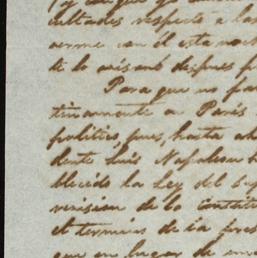 (y aunque yo
cultades respecto a las
verme con él esta noche
te lo avisaré despues p
Para que no
tinuamente en Paris
politico, pues, hasta ah
dente Luis Napoleon h
blecido la Ley del
revision de la constit
el termino de la pres
que en lugar de